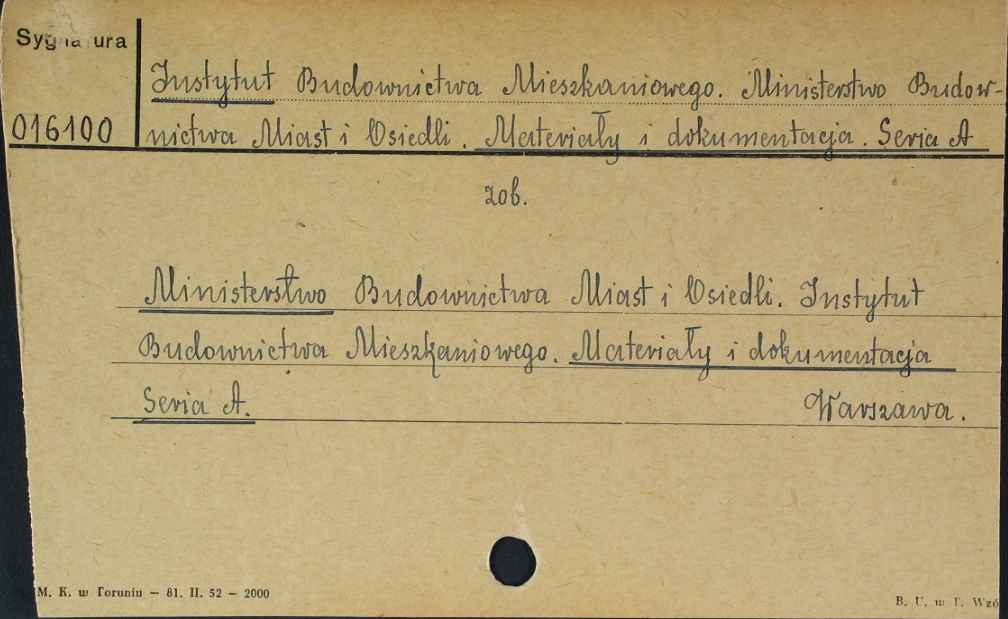 Sygnatura
Instytut Budownictwa Mieszkaniowego. Ministerstwo Budow-
016100 nictwa Miast i Osiedli. Materiały i dokumentacja. Seria A
zob.
Ministerstwo Budownictwa Miast i Osiedli. Instytut
Budownictwa Mieszkaniowego. Materiały i dokumentacja
Seria A. Warszawa.
M. K. w Toruniu — 81. II. 52 — 2000
B. U. w T. Wzó